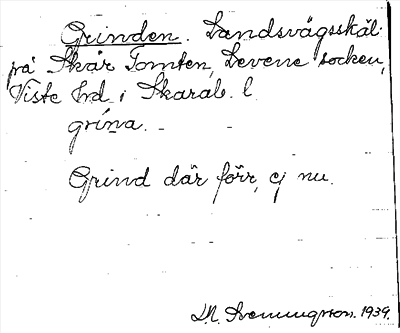 Grinden. Landsvägsskäl
på Skår Tomten, Levene socken,
Viste hrd i Skarab. l.
grína.
Grind där förr, ej nu.
1939.